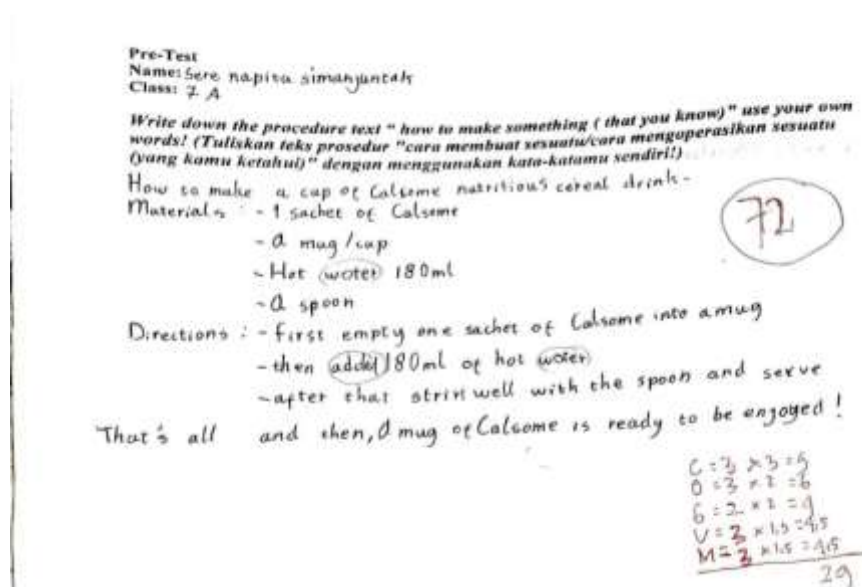 Pre-Test
Name: Sere napita simanjuntak
Class: 7 A
Write down the procedure text " how to make something ( that you know)" use your own
words! (Tuliskan teks prosedur "cara membuat sesuatu/cara mengoperasikan sesuatu
(yang kamu ketahui)" dengan menggunakan kata-katamu sendiri!)
How to make a cup of Calsome nutritious cereal drink-
Materials : - 1 sachet of Calsome
- a mug /cup
- Hot woter 180ml
- a spoon
72
Directions : - first empty one sachet of Calsome into a mug
- then 180ml of hot woter
- after that well with the spoon and serve
That's all and then, a mug of Calsome is ready to be enjoyed !
C = 3 x 3 = 9
O = 3 x 2 = 6
G = 2 x 2 = 4
V = 3 x 1,5 = 4,5
M = 3 x 1,5 = 4,5
29